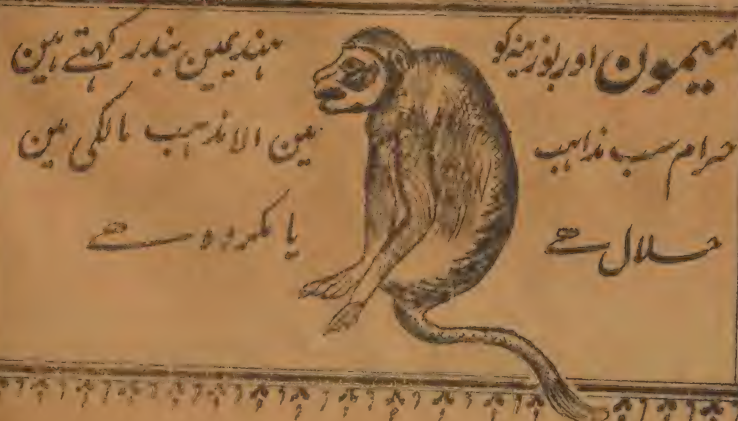 میمون اور بوزینہ کو ہندیمین بندر کہتے ہین
حرام سب مذاہب مین الا مذہب مالکی مین
حلال ہے یا مکروہ ہے